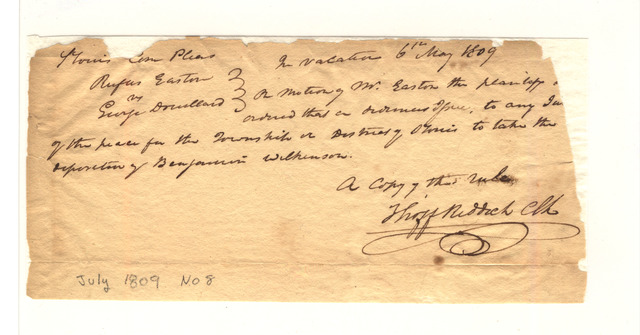 St Louis Com Pleas
In Vacation 6th May 1809
Rufus Easton
vs
George Douillard
On motion of Mr. Easton the plaintiff
ordered that an dedimus Issue, to any
of the peace for the Township or District of St Louis to take the
deposition of Benjamin Wilkinson.
A Copy of the rule
Thos F Riddick Clk
July 1809 No 8